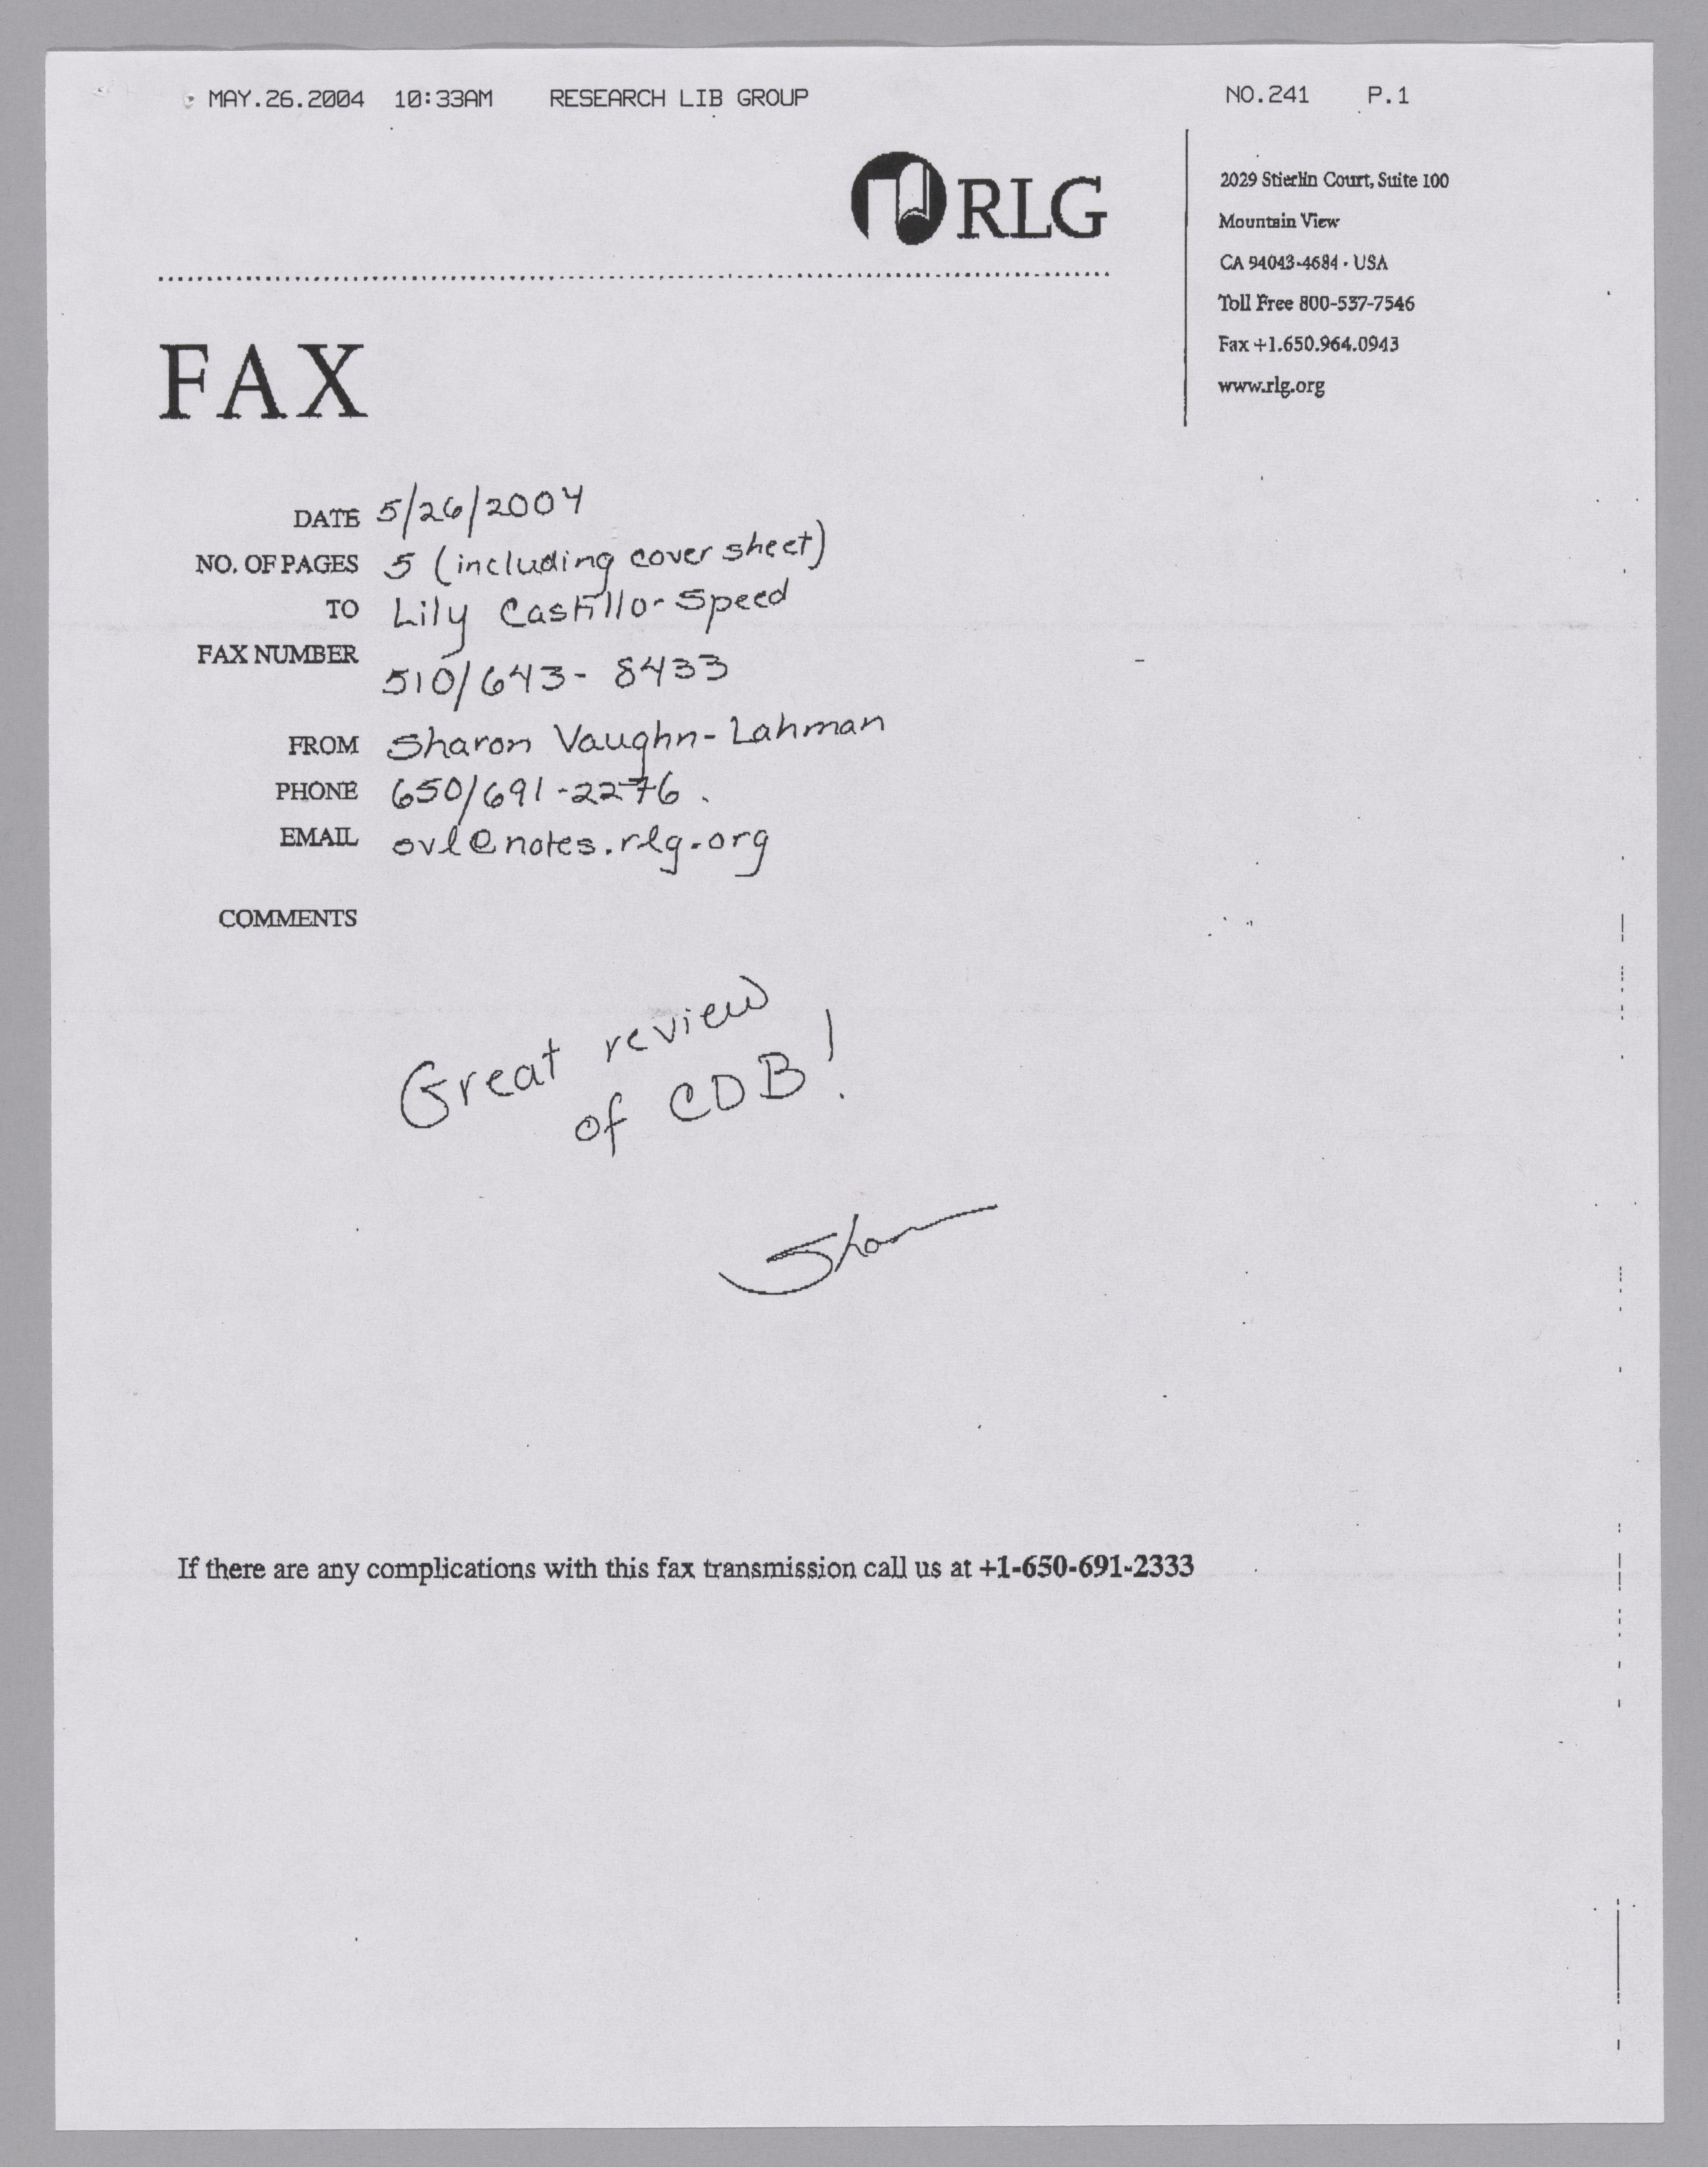 MAY.26.2004 10:33AM RESEARCH LIB GROUP NO.241 P.1
RLG
2029 Stierlin Court, Suite 100
Mountain View
CA 94043-4684 · USA
Toll Free 800-537-7546
Fax +1.650.964.0943
www.rlg.org
FAX
DATE 5/26/2004
NO. OF PAGES 5 (including cover sheet)
TO Lily Castillo-Speed
FAX NUMBER
510/643-8433
FROM Sharon Vaughn-Lahman
PHONE 650/691-2276.
EMAIL svl@notes.rlg.org
COMMENTS
Great review
of CDB!
Sharon
If there are any complications with this fax transmission call us at +1-650-691-2333